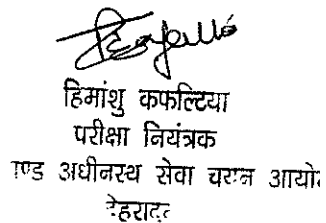 हिमांशु कफल्टिया
परीक्षा नियंत्रक
अधीनस्थ सेवा चयन आयोग
देहरादून